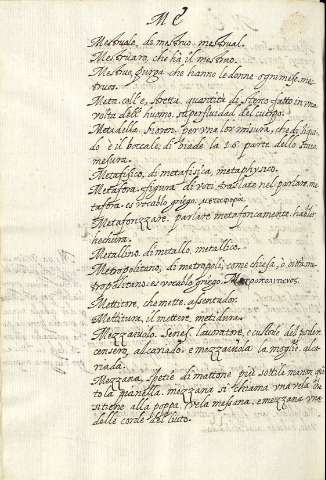 M e
Mestruale, di mestruo. mestrual.
Mestruaro, che hà il mestruo.
Mestruo, purga che hanno le donne ogni mese. me
truo.
Meta. call e, stretta, quantità di sterco fatto in una
volta dall' huomo. superfluidad del cuerpo.
Metadella, fioren. per una lor misura, che di liqui
do è il boccale, di biada la 16. parte dello staio,
mesura.
Metafisico, di metafisica, metaphysico.
Metafora. figura di voci traslate nel parlare, me
tafora. es vocablo griego.
Metaforizzare. parlare metaforicamente, hablar
Metallino. di metallo, metallico.
Metropolitano, di metropoli, come chiesa, o città. me
tropolitano. es vocablo griego.
Mettitore, che mette, assentador.
Mettitura, il mettere, metidura.
Mezzaiuolo. lauoratore, e
censero, e mezzaiuola la moglie, alca
Mezzana, spetie di mattone più sottile
la pianella. mezzana si chiama una vela che
si tiene alla poppa, vela mesana, e mezzana una
delle corde del liuto.